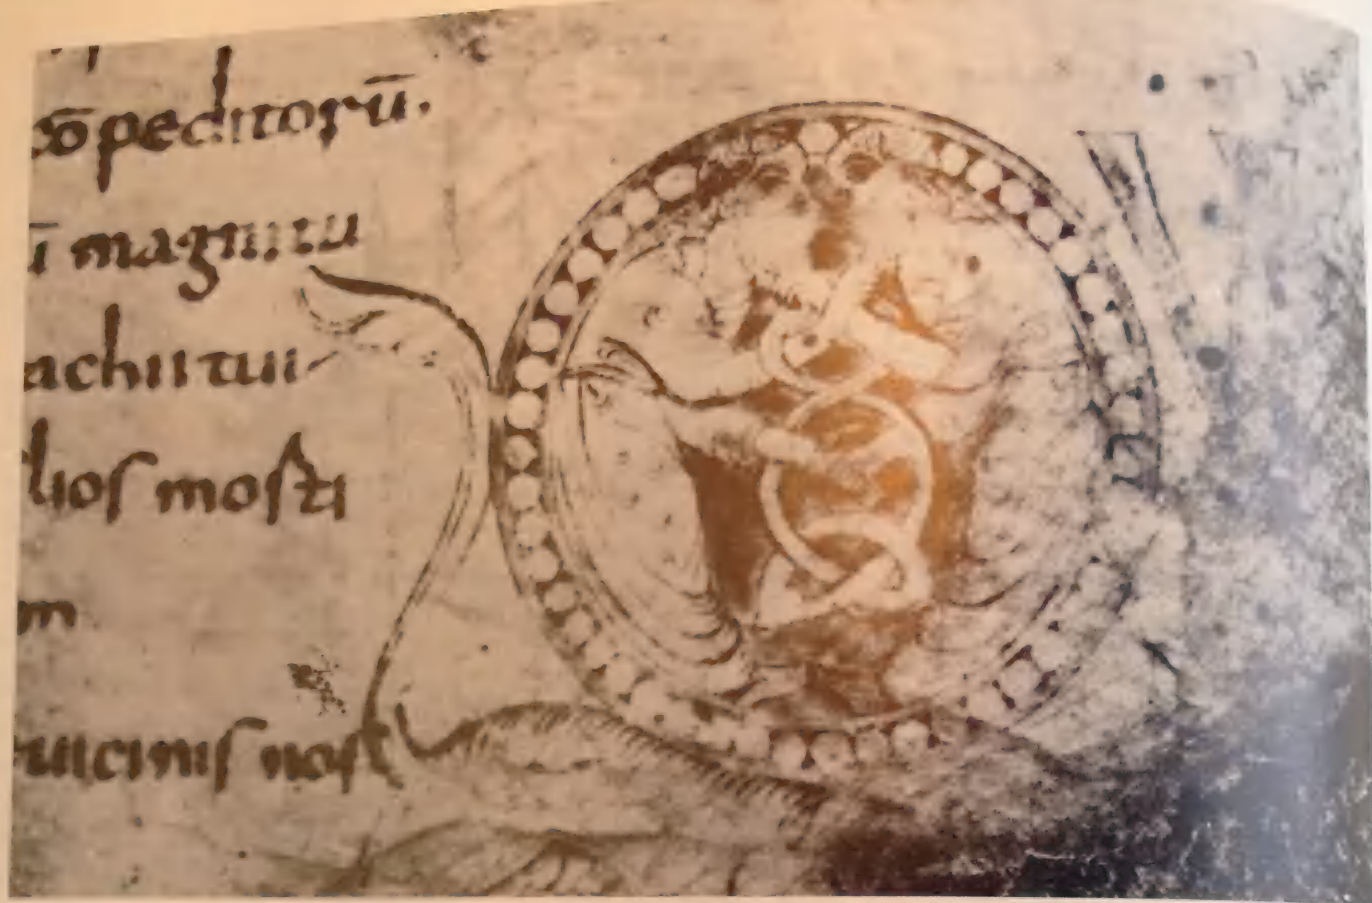 cōpeditorū.
ū magnitu
achii tui
lios morti
m
uicinis nost